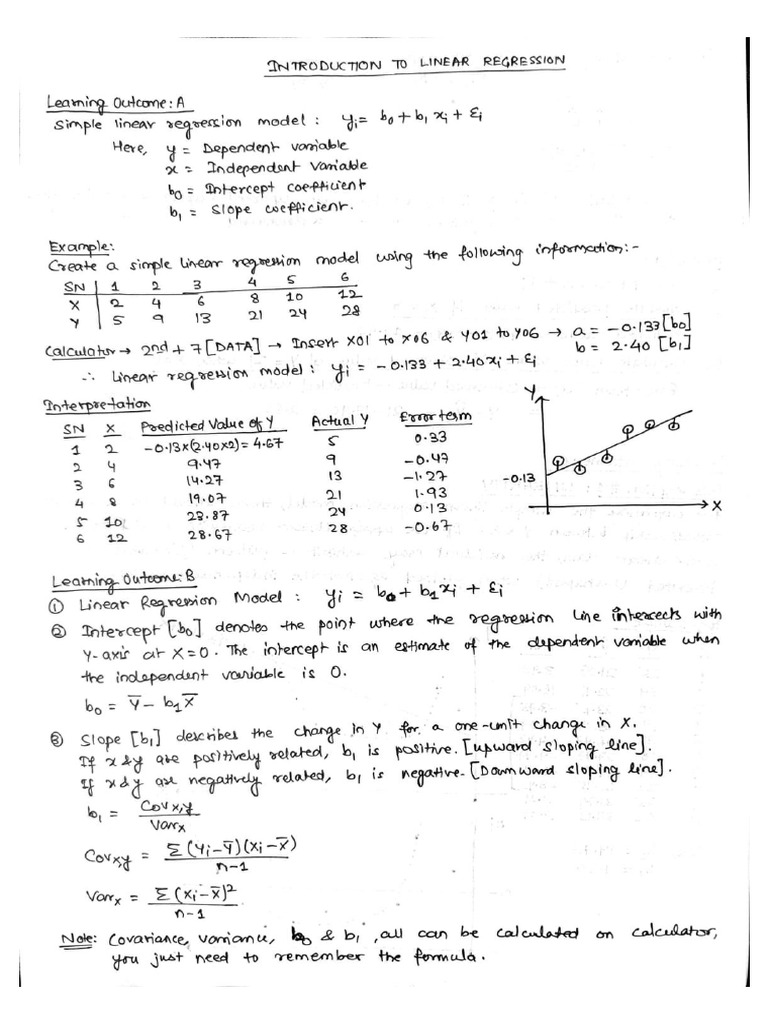 INTRODUCTION TO LINEAR REGRESSION
Learning Outcome: A
Simple linear regression model : yi = b0 + b1 xi + εi
Here, y = Dependent variable
x = Independent variable
b0 = Intercept coefficient
b1 = Slope coefficient.
Example:
Create a simple linear regression model using the following information:-
SN 1 2 3 4 5 6
X 2 4 6 8 10 12
Y 5 9 13 21 24 28
Calculator → 2nd + 7 [DATA] → Insert X01 to X06 & Y01 to Y06 → a = -0.133 [b0]
b = 2.40 [b1]
∴ Linear regression model : yi = -0.133 + 2.40xi + εi
Interpretation
SN X Predicted Value of Y Actual Y Error term
1 2 -0.13×(2.40×2) = 4.67 5 0.33
2 4 9.47 9 -0.47
3 6 14.27 13 -1.27
4 8 19.07 21 1.93
5 10 23.87 24 0.13
6 12 28.67 28 -0.67
Y
-0.13
X
Learning Outcome: B
① Linear Regression Model : yi = b0 + b1xi + εi
② Intercept [b0] denotes the point where the regression line intersects with
Y-axis at X=0. The intercept is an estimate of the dependent variable when
the independent variable is 0.
b0 = Y̅ - b1X̅
③ Slope [b1] describes the change in Y for a one-unit change in X.
If x & y are positively related, b1 is positive. [upward sloping line].
If x & y are negatively related, b1 is negative. [Downward sloping line].
b1 = Covx,y / Varx
Covx,y = Σ(Yi-Y̅)(Xi-X̅) / n-1
Varx = Σ(Xi-X̅)² / n-1
Note: Covariance, variance, b0 & b1, all can be calculated on calculator,
you just need to remember the formula.